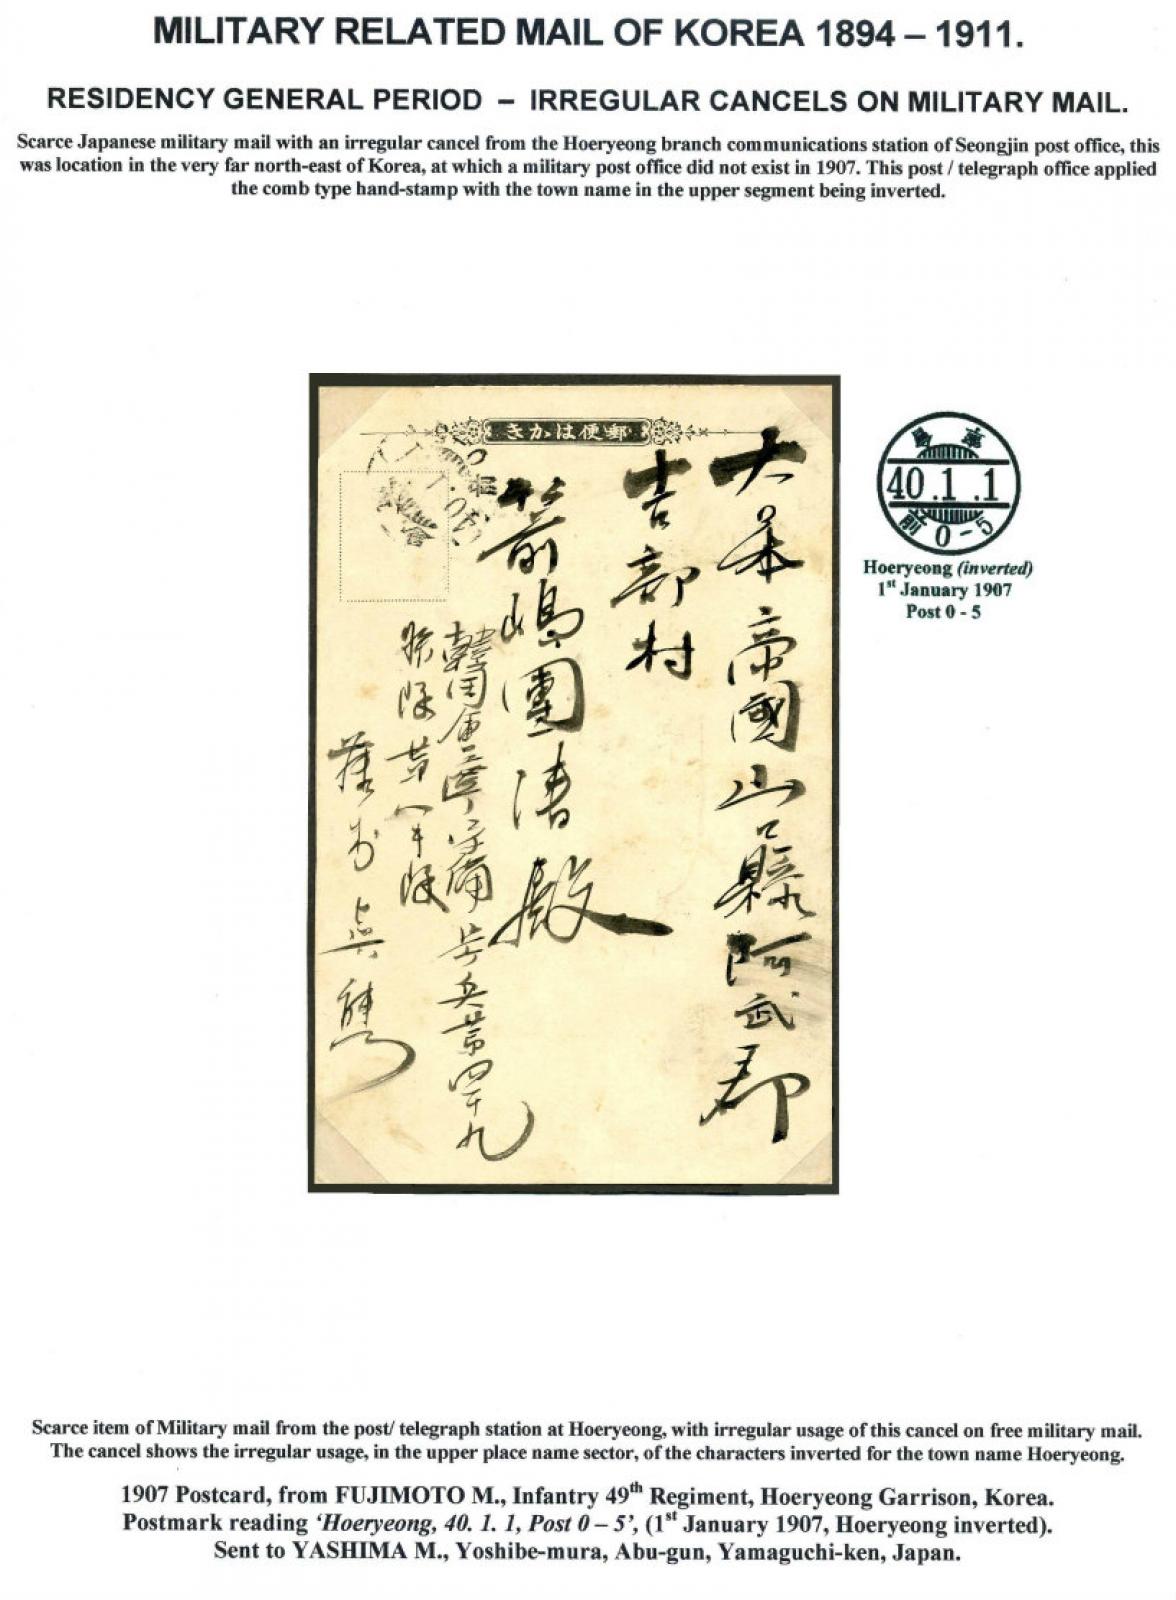 MILITARY RELATED MAIL OF KOREA 1894 – 1911.
RESIDENCY GENERAL PERIOD – IRREGULAR CANCELS ON MILITARY MAIL.
Scarce Japanese military mail with an irregular cancel from the Hoeryeong branch communications station of Seongjin post office, this
was location in the very far north-east of Korea, at which a military post office did not exist in 1907. This post / telegraph office applied
the comb type hand-stamp with the town name in the upper segment being inverted.
郵便はかき
大日本帝國山口縣阿武郡
吉部村
箭嶋團殿
韓国會寧守備歩兵第四十九
聯隊第八中隊
40.1.1
前 0-5
Hoeryeong (inverted)
1st January 1907
Post 0 - 5
Scarce item of Military mail from the post/ telegraph station at Hoeryeong, with irregular usage of this cancel on free military mail.
The cancel shows the irregular usage, in the upper place name sector, of the characters inverted for the town name Hoeryeong.
1907 Postcard, from FUJIMOTO M., Infantry 49th Regiment, Hoeryeong Garrison, Korea.
Postmark reading ‘Hoeryeong, 40. 1. 1, Post 0 – 5’, (1st January 1907, Hoeryeong inverted).
Sent to YASHIMA M., Yoshibe-mura, Abu-gun, Yamaguchi-ken, Japan.